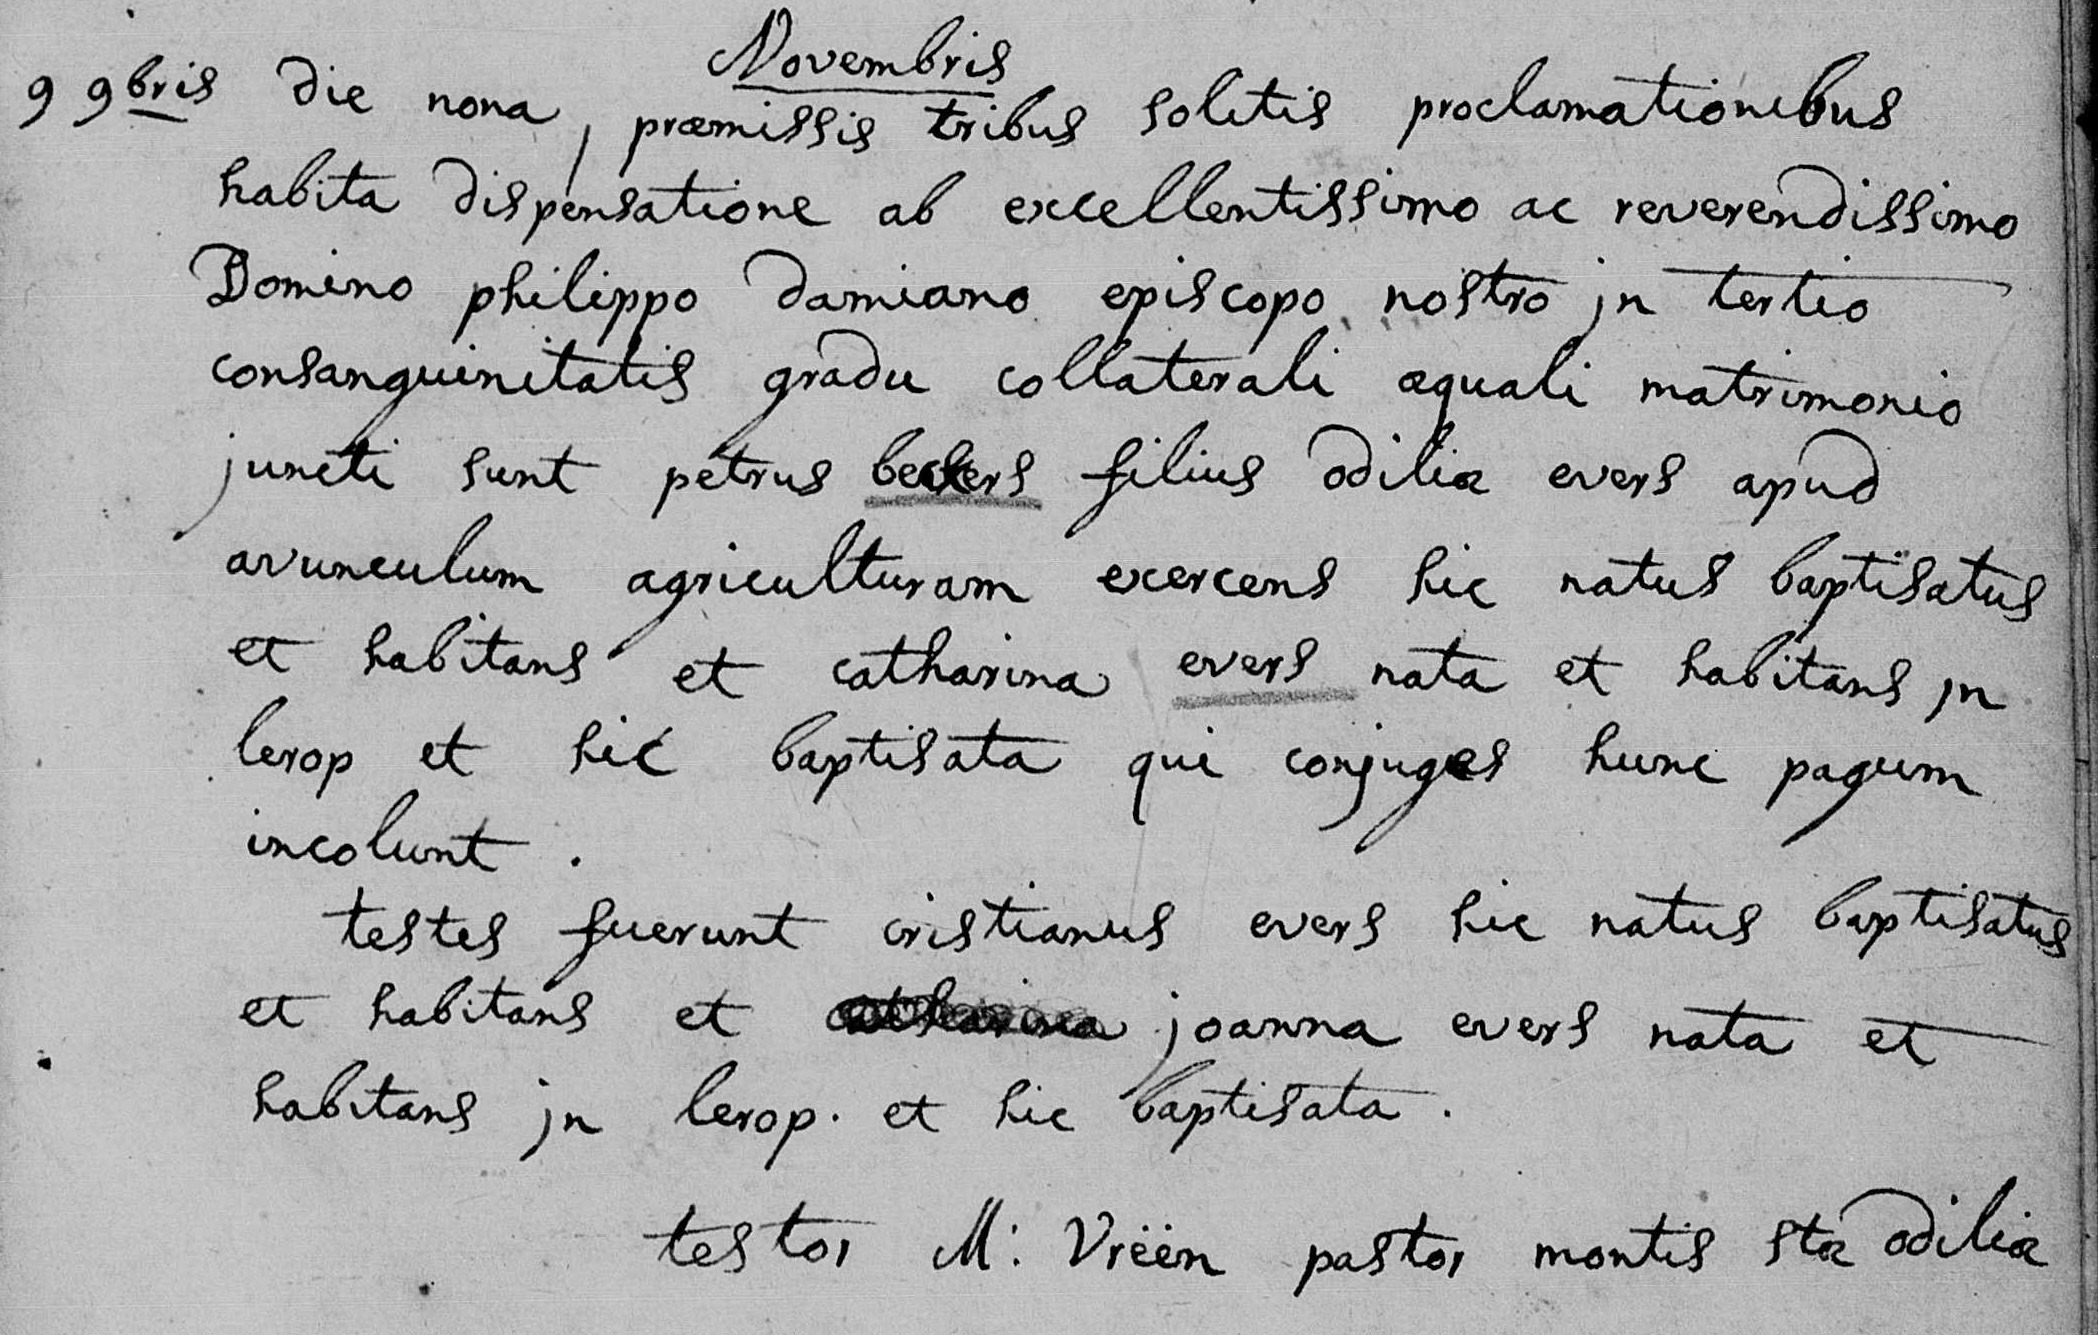 Novembris
9 9bris die nona, præmissis tribus solitis proclamationibus
habita dispensatione ab excellentissimo ac reverendissimo
Domino philippo damiano episcopo nostro jn tertio
consanguinitatis gradu collaterali æquali matrimonio
juncti sunt petrus beckers filius odiliæ evers apud
avunculum agriculturam exercens hic natus baptisatus
et habitans et catharina evers nata et habitans jn
lerop et hic baptisata qui conjuges hunc pagum
incolunt.
testes fuerunt cristianus evers hic natus baptisatus
et habitans et catharina joanna evers nata et
habitans jn lerop. et hic baptisata.
testor M: Vrëën pastor montis stæ odiliæ